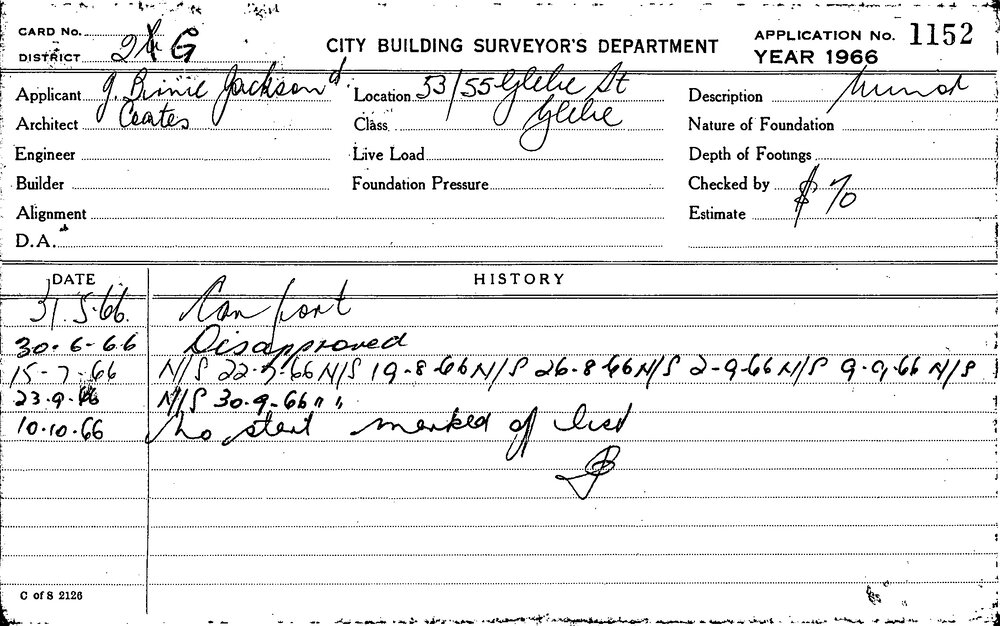 CARD No.
DISTRICT 2 G
CITY BUILDING SURVEYOR'S DEPARTMENT
APPLICATION No. 1152
YEAR 1966
Applicant J. Binnie Jackson &
Architect Coates
Engineer
Builder
Alignment
D.A.
Location 53/55 Glebe St
Glebe
Class
Live Load
Foundation Pressure
Description Minor
Nature of Foundation
Depth of Footings
Checked by
Estimate $ 70
DATE HISTORY
31.5.66. Car port
30.6-66 Disapproved
15-7-66 N/S 22-7-66 N/S 19-8-66 N/S 26-8-66 N/S 2-9-66 N/S 9-9-66 N/S
23.9.66 N/S 30-9-66 " "
10.10.66 No start marked of list
C of S 2126